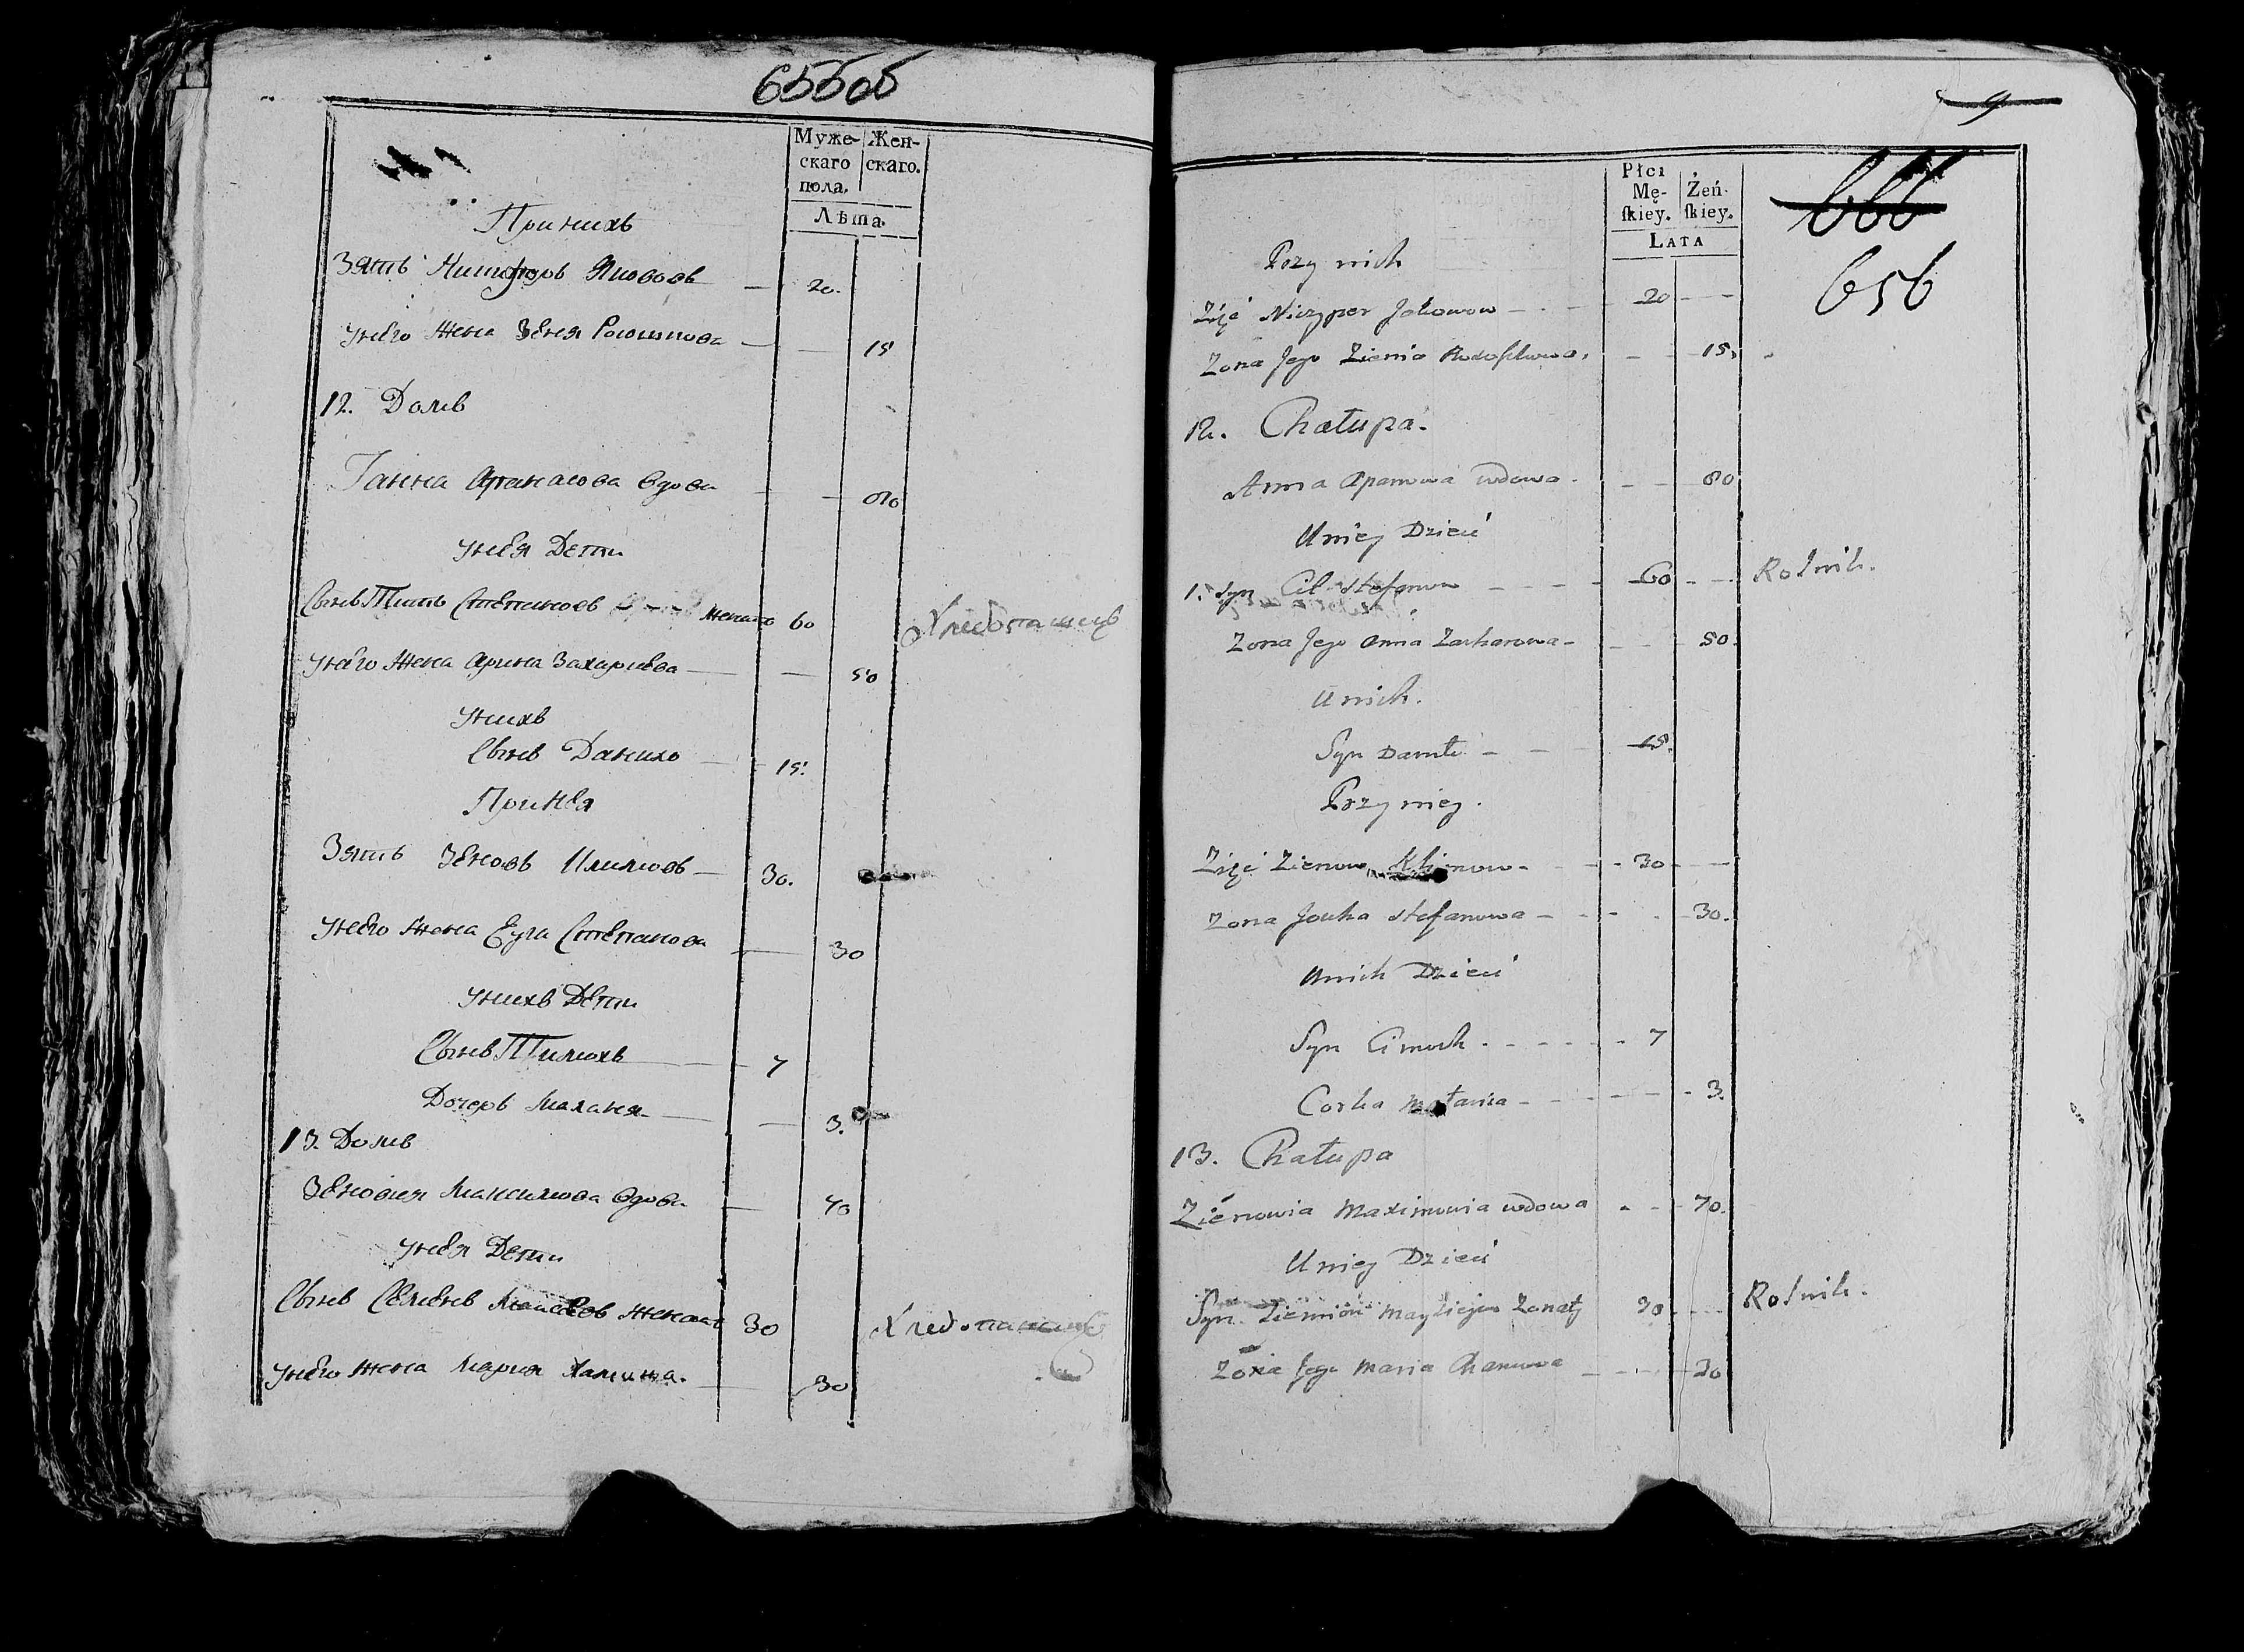 655об
Муже- Жен-
скаго скаго.
пола.
Лѣта.
При нихъ
Зять Ничипоръ Якововъ — 20.
У него Жена Зеня — 15
12. Домъ
Ганна Афанасова вдова — — 80
У нея Дети
Сынъ Титъ Степановъ женатъ 60 Хлебопашецъ
У него Жена Арина Захариева — — 50
У нихъ
Сынъ Данило — 15.
При нея
Зять Зеновъ Климовъ — 30.
У него Жена Еуга Степанова — 30
У нихъ Дети
Сынъ Тимохъ — 7
Дочеръ Маланя — — 3.
13. Домъ
Зеновия Максимова вдова — 70
У нея Дети
Сынъ Семенъ женатъ 30 Хлебопашецъ
У него Жена Мария — 30
9
Płci
Mę- Żeń-
ſkiey. ſkiey.
LATA
656
Przy nich
Zięć Niczyper Jakowow — 20 —
Zona Jego Zienia — 15.
12. Chałupa.
Anna Apanowa wdowa. — — 80
U niey Dzieci
1. Syn Cit Stefanow — 60 — Rolnik.
Zona Jego Anna Zacharowa — — 50.
U nich.
Syn Daniło — 15.
Przy niey.
Zięć Zienow Klimow — 30 —
Zona Jouha Stefanowa — 30.
U nich Dzieci
Syn Cimoch — 7
Corka Małania — 3.
13. Chałupa
Zienowia Maximowa wdowa — 70.
U niey Dzieci
Syn Ziemion Zonaty 30 — Rolnik.
Zona Jego Maria — 30